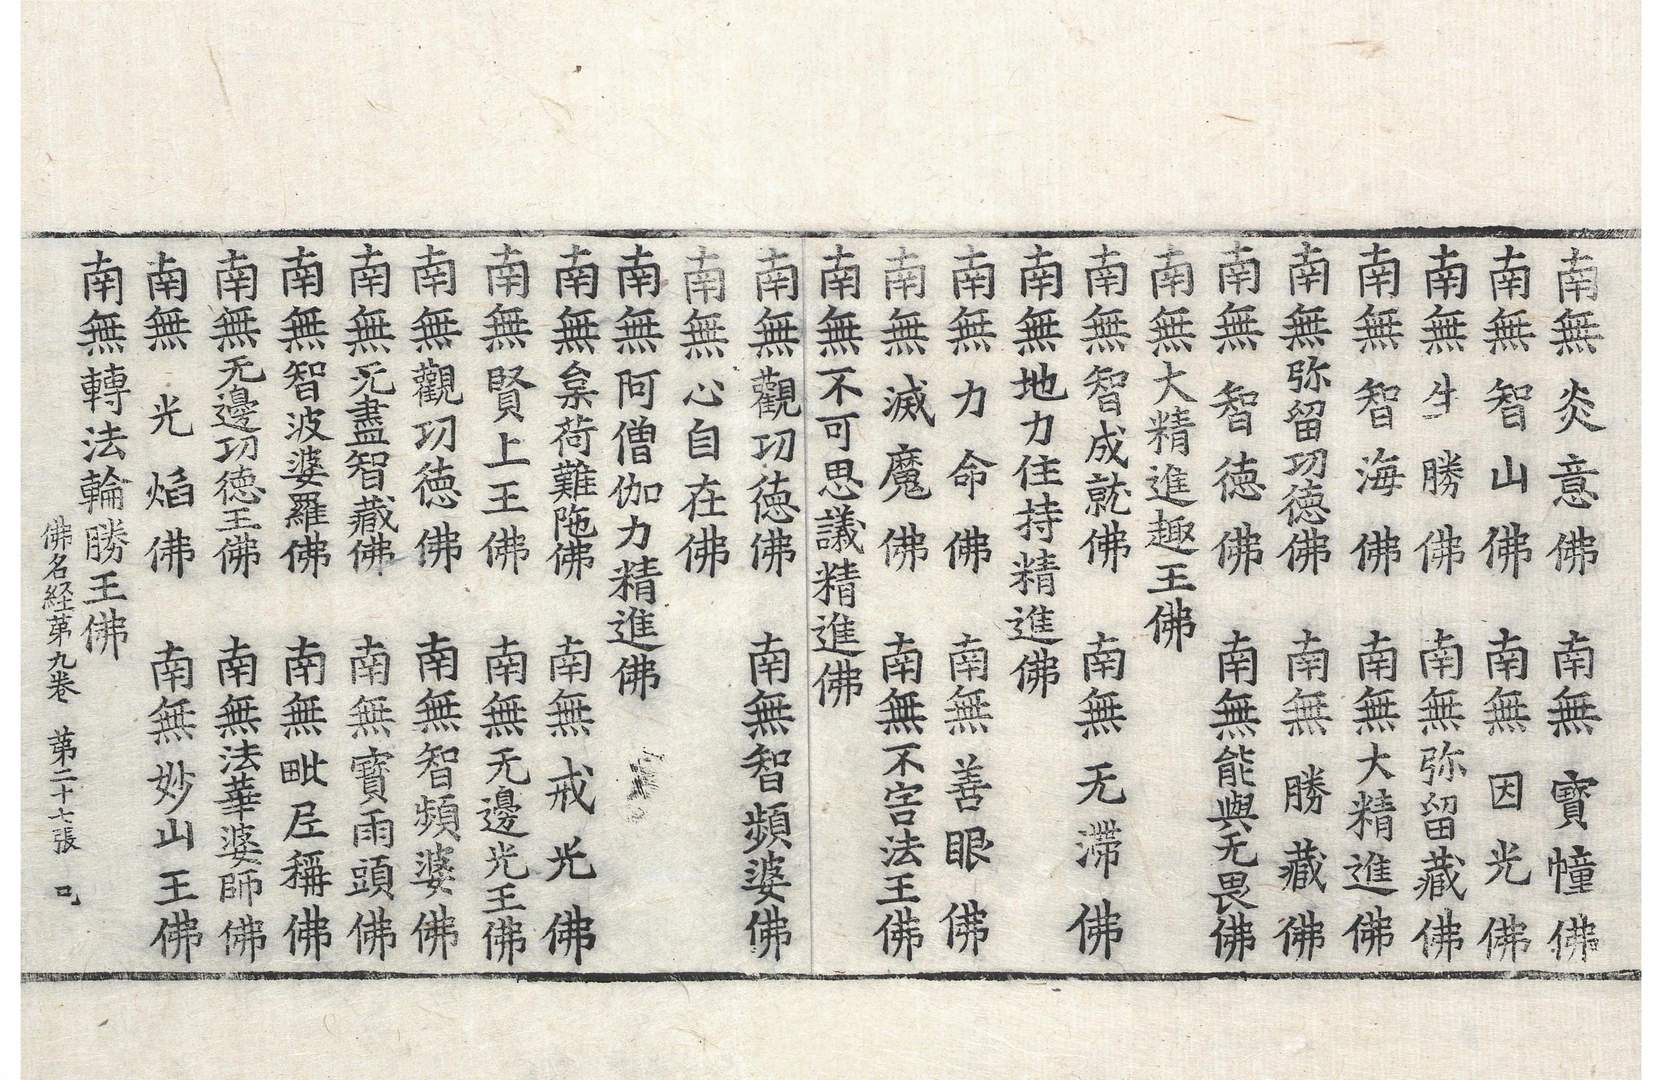 南無炎意佛　南無寶幢佛
南無智山佛　南無因光佛
南無生勝佛　南無弥留藏佛
南無智海佛　南無大精進佛
南無弥留功德佛　南無勝藏佛
南無智德佛　南無能與无畏佛
南無大精進趣王佛
南無智成就佛　南無无滯佛
南無地力住持精進佛
南無力命佛　南無善眼佛
南無滅魔佛　南無不害法王佛
南無不可思議精進佛
南無觀功德佛　南無智頻婆佛
南無心自在佛
南無阿僧伽力精進佛
南無荷難陁佛　南無戒光佛
南無賢上王佛　南無无邊光王佛
南無觀功德佛　南無智頻婆佛
南無无盡智藏佛　南無寶雨頭佛
南無智波婆羅佛　南無毗尼稱佛
南無无邊功德王佛　南無法華婆師佛
南無光焰佛　南無妙山王佛
南無轉法輪勝王佛
佛名経苐九卷　苐二十七張